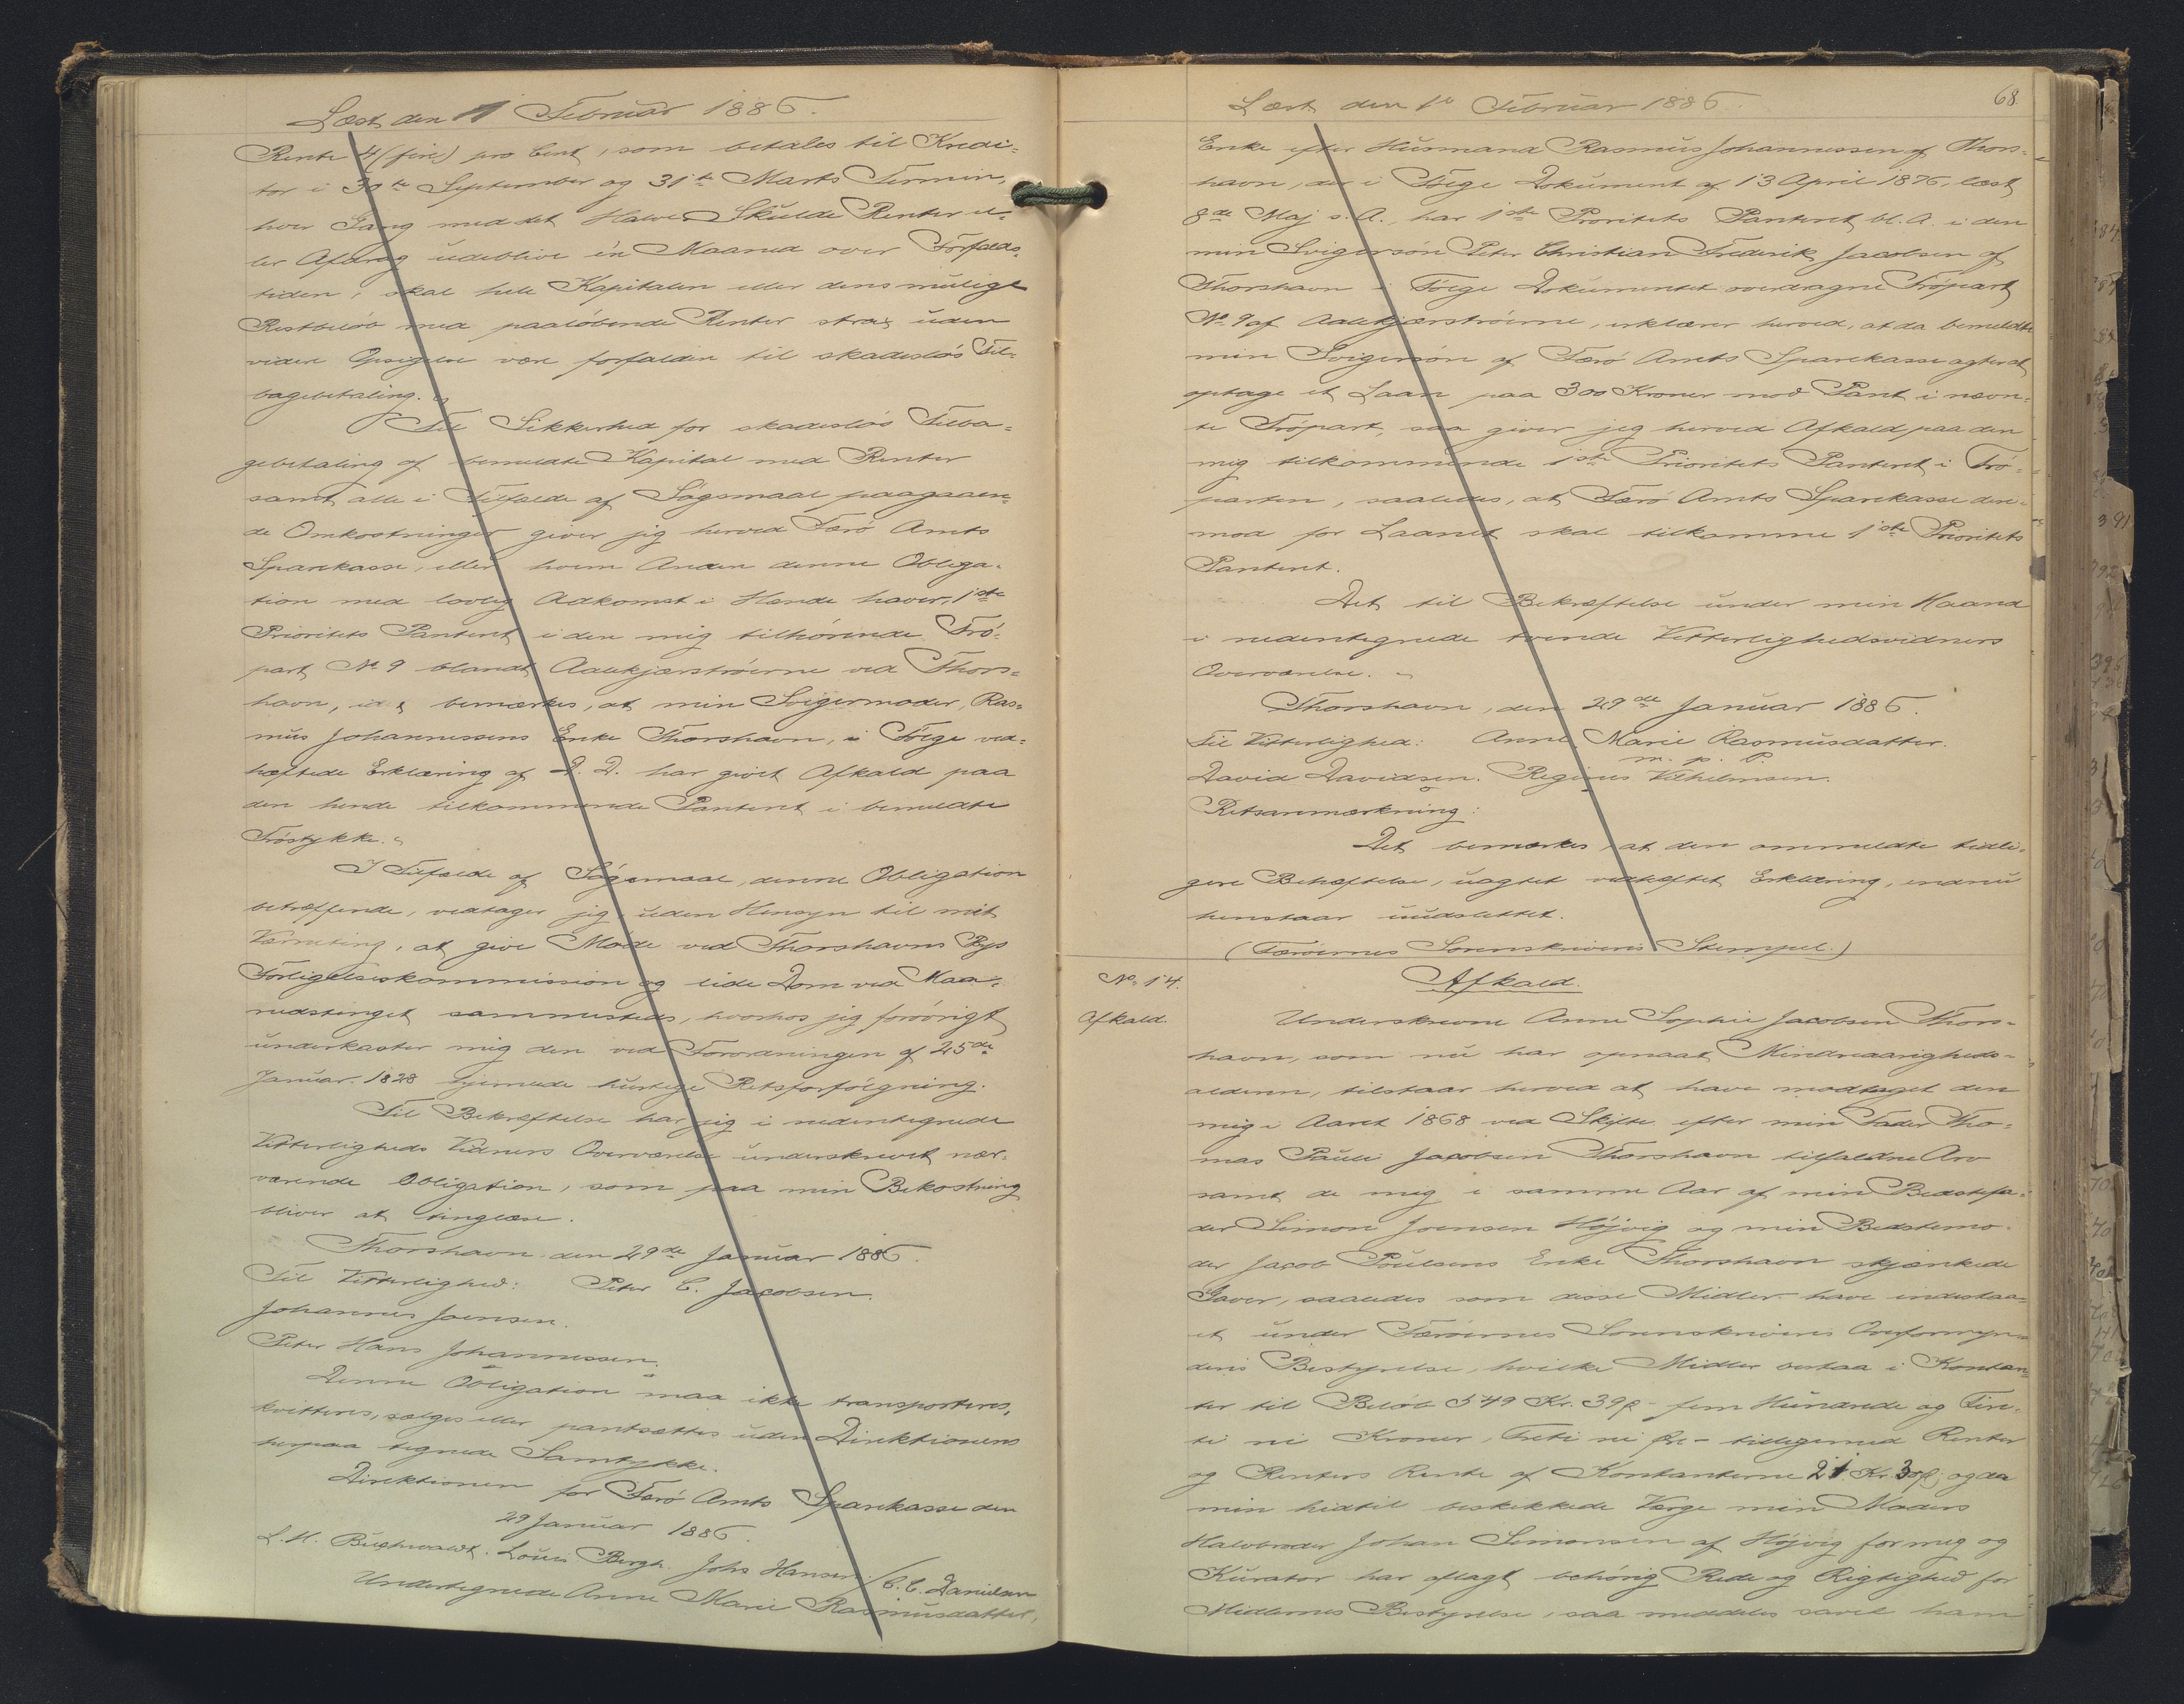 Læst den 1 Februar 1886.
Rente 4 (fire) pro Cent, som betales til Kredi-
tor i 30te September og 31te Marts Termin,
hver Gang med det Halve. Skulde Renter el-
ler Afdrag udeblive én Maaned over Forfalds-
tiden, skal hele Kapitalen eller dens mulige
Restbeløb med paaløbende Renter strax uden
videre Opsigelse være forfalden til skadesløs Til-
bagebetaling.
Til Sikkerhed for skadesløs Tilba-
gebetaling af bemeldte Kapital med Renter
samt alle i Tilfælde af Søgsmaal paagaaen-
de Omkostninger giver jeg herved Færø Amts
Sparekasse, eller hvem Anden denne Obliga-
tion med lovlig Adkomst i Hænde haver, 1ste
Prioritets Panteret i den mig tilhørende Trø-
part No 9 blandt Aalekjærstrøerne ved Thors-
havn, idet bemærkes, at min Svigermoder, Ras-
mus Johannessens Enke Thorshavn, i Følge ved-
hæftede Erklæring af D. D. har givet Afkald paa
den hende tilkommende Panteret i bemeldte
Trøstykke.
I Tilfælde af Søgsmaal, denne Obligation
betræffende, vedtager jeg, uden Hensyn til mit
Værneting, at give Møde ved Thorshavns Bys
Forligelseskommission og lide Dom ved Maa-
nedstinget sammesteds, hvorhos jeg forøvrigt
underkaster mig den ved Forordningen af 25de
Januar 1828 hjemlede hurtige Retsforfølgning.
Til Bekræftelse har jeg i nedentegnede
Vitterligheds Vidners Overværelse underskrevet nær-
værende Obligation, som paa min Bekostning
bliver at tinglæse.
Thorshavn den 29de Januar 1886.
Til Vitterlighed: Peter C. Jacobsen.
Johannes Joensen.
Peter Hans Johannessen.
Denne Obligation maa ikke transporteres,
kvitteres, sælges eller pantsættes uden Direktionens
herpaa tegnede Samtykke.
Direktionen for Færø Amts Sparekasse den
29 Januar 1886.
L. M. Buchwaldt. Louis Bergh. Johs Hansen / C. C. Danielsen
Undertegnede Anne Marie Rasmusdatter,
68.
Læst den 1te Februar 1886
Enke efter Husmand Rasmus Johannessen af Thors-
havn, der i Følge Dokument af 13 April 1876, læst
8de Maj s. A., har 1ste Prioritets Panteret bl. A. i den
min Svigersøn Peter Christian Frederik Jacobsen af
Thorshavn i Følge Dokumentet overdragne Trøpart
No. 9 af Aalekjærstrøerne, erklærer herved, at da bemeldte
min Svigersøn af Færø Amts Sparekasse agter at
optage et Laan paa 300 Kroner mod Pant i nævn-
te Trøpart, saa giver jeg herved Afkald paa den
mig tilkommende 1ste Prioritets Panteret i Trø-
parten, saaledes, at Færø Amts Sparekasse deri-
mod for Laanet skal tilkomme 1ste Prioritets
Panteret.
Det til Bekræftelse under min Haand
i nedentegnede tvende Vitterlighedsvidners
Overværelse.
Thorshavn, den 29de Januar 1886.
Til Vitterlighed: Anne Marie Rasmusdatter.
m. p. P.
David Davidsen. Reginus Vilhelmsen.
Retsanmærkning:
Det bemærkes, at den ommeldte tidli-
gere Behæftelse, uagtet vedhæftet Erklæring, endnu
henstaar uudslettet.
(Færøernes Sorenskriveris Stempel.)
No. 14.
Afkald.
Afkald.
Underskrevne Anne Sophie Jacobsen Thors-
havn, som nu har opnaaet Mindreaarigheds-
alderen, tilstaar herved at have modtaget den
mig i Aaret 1868 ved Skifte efter min Fader Tho-
mas Pauli Jacobsen Thorshavn tilfaldne Arv
samt de mig i samme Aar af min Bedstefa-
der Simon Joensen Højvig og min Bedstemo-
der Jacob Poulsens Enke Thorshavn skjænkede
Gaver, saaledes som disse Midler have indestaa-
et under Færøernes Sorenskriveris Overformyn-
deris Bestyrelse, hvilke Midler bestaa i Kontan-
ter til Beløb 549 Kr. 39 Ø - fem Hundrede og Fire-
ti ni Kroner, Treti ni Øre - tilligemed Renter
og Renters Rente af Kontanterne 21 Kr. 30 Ø; og da
min hidtil beskikkede Værge min Moders
Halvbroder Johan Simonsen af Højvig for mig og
Kurator har aflagt behørig Rede og Rigtighed for
Midlernes Bestyrelse, saa meddeles savel ham